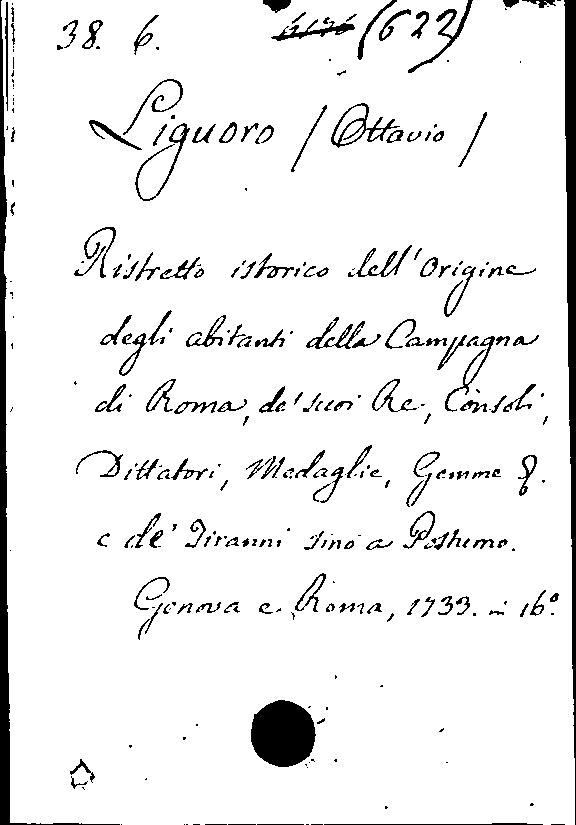 38. 6. (622)
Liguoro / Ottavio /
Ristretto istorico dell' Origine
degli abitanti della Campagna
di Roma, de' suoi Re, Consoli,
Dittatori, Medaglie, Gemme &.
e de' Tiranni sino a Postumo.
Genova e Roma, 1733. in 16.º